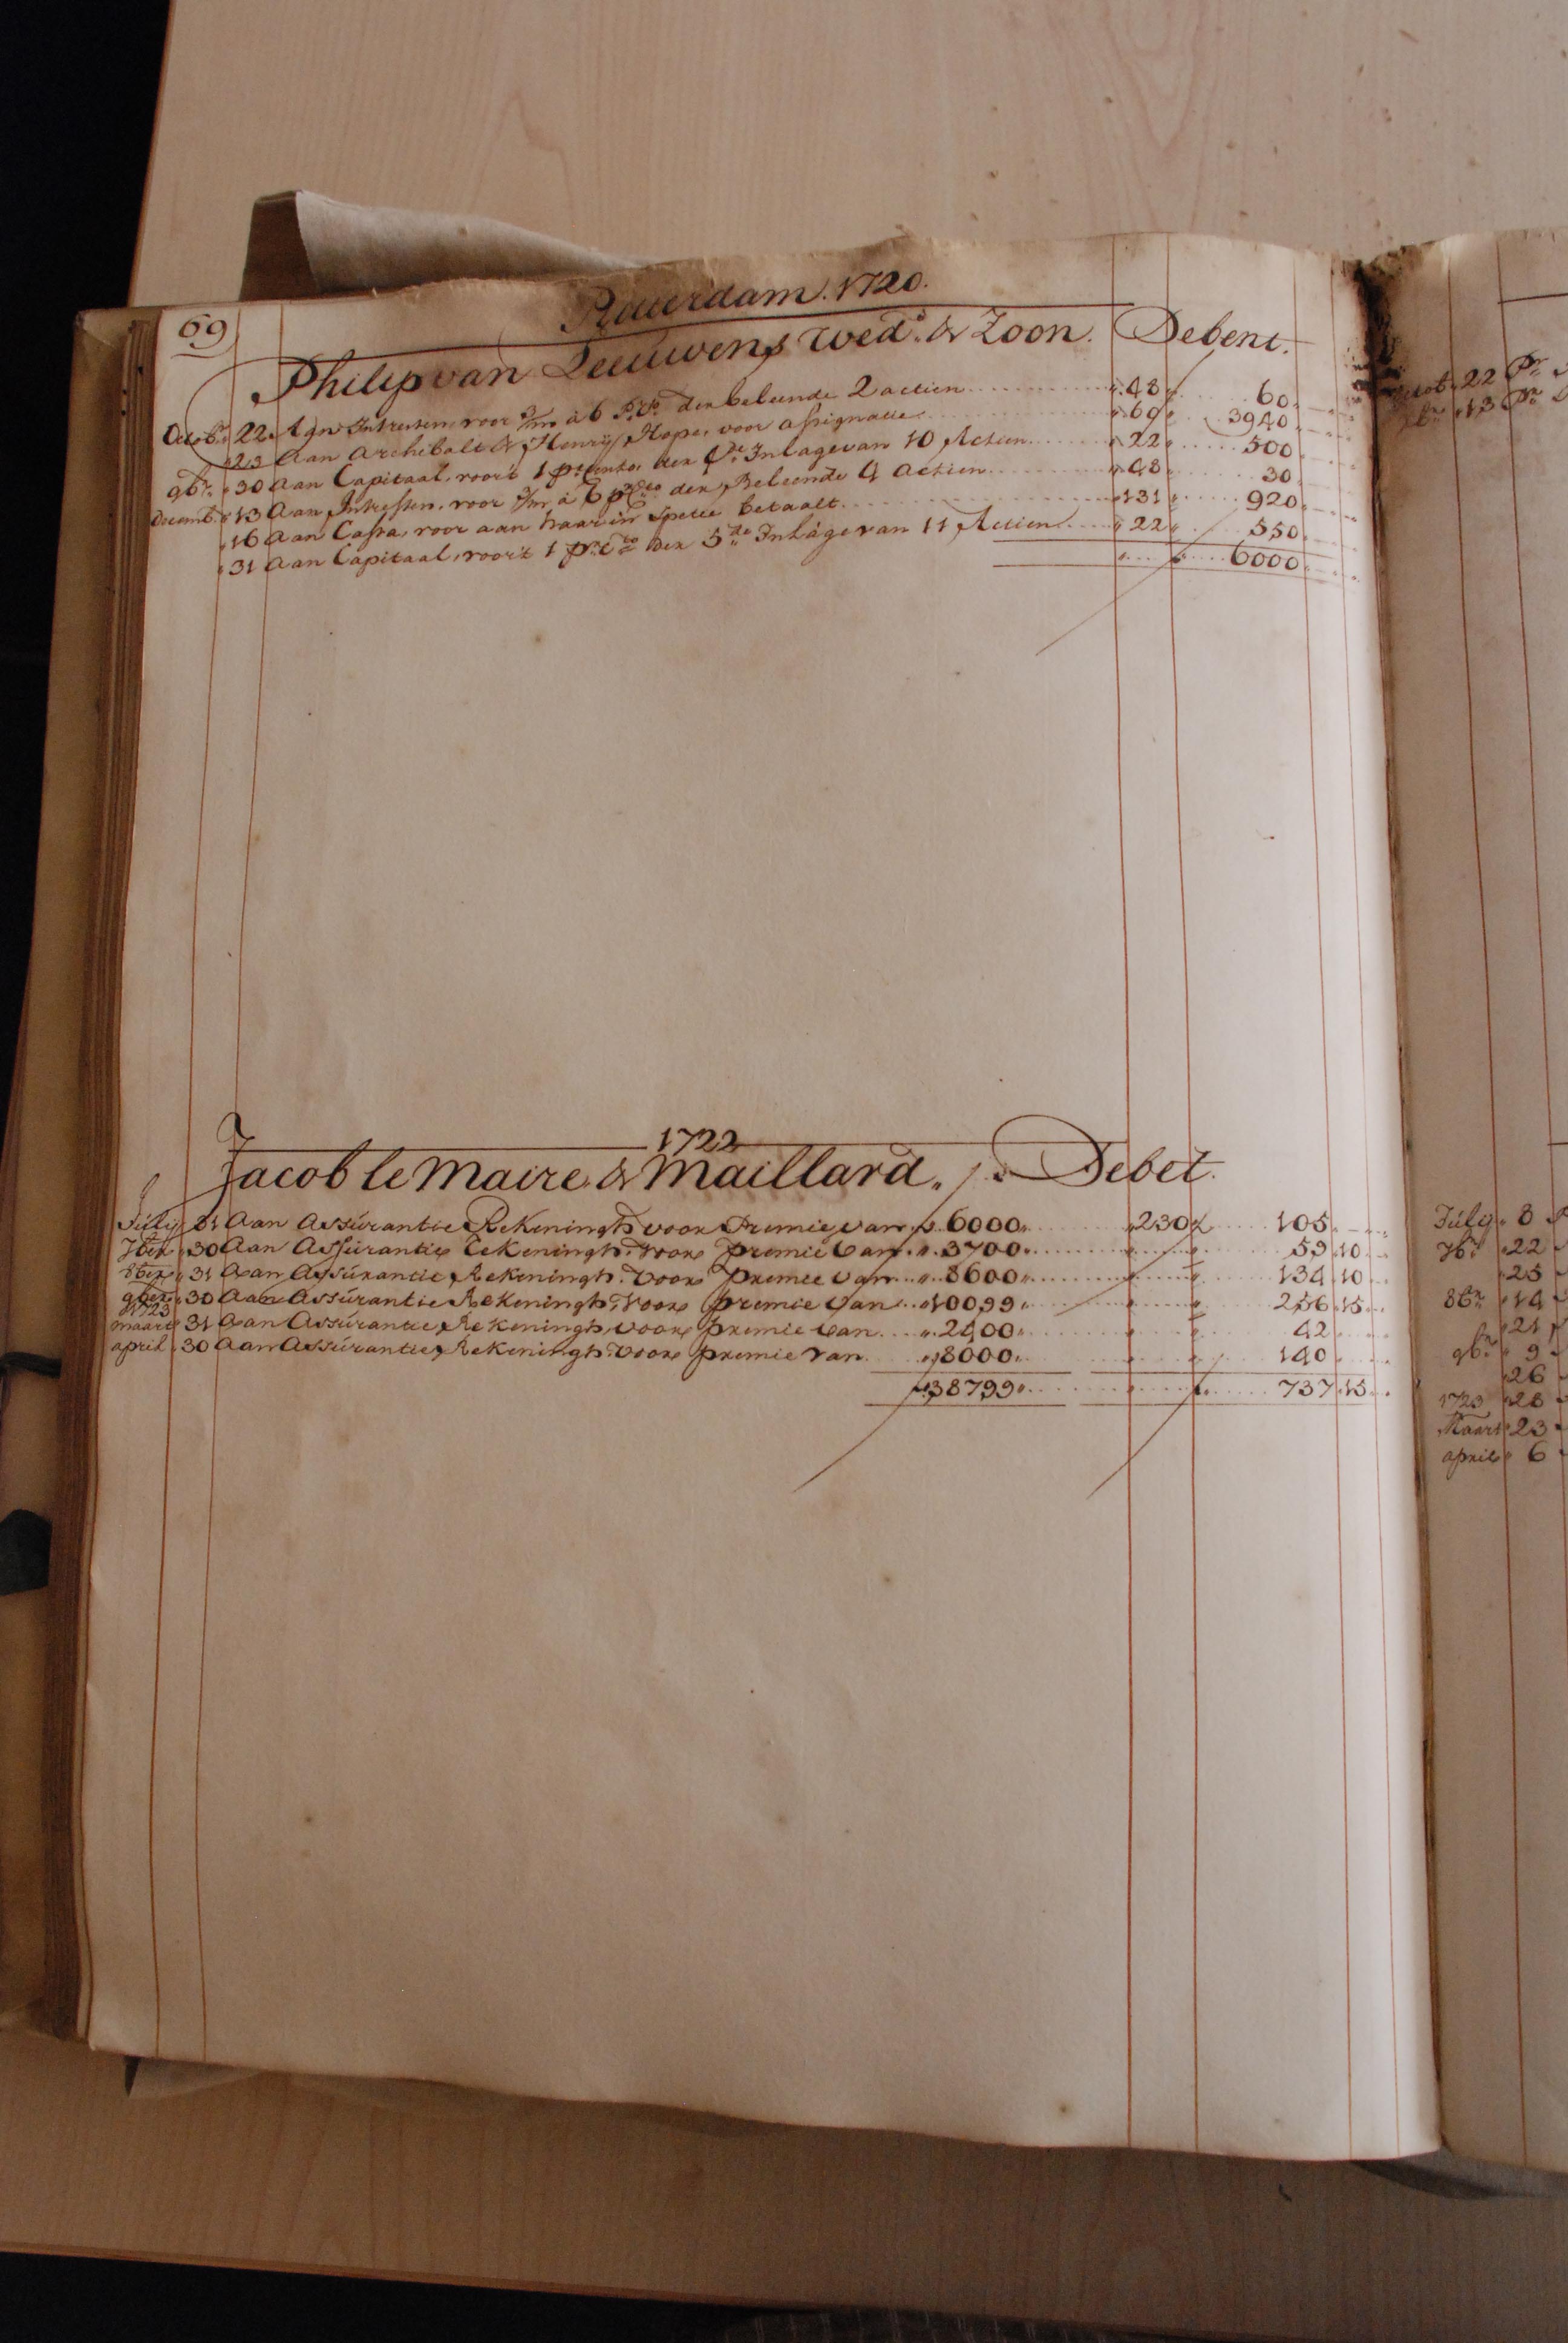 69
Rotterdam. 1720.
Philip van Leeuwens Wed.e & Zoon. Debent.
Octobr. 22 Aan Intressen, voor 3/m à 6 P.Cto. der beleende 2 actien 48 60
23 Aan Archibalt & Henry Hope, voor assignatie 69 3940
9br. 30 Aan Capitaal, voor't 1 pr. Cento, der Inlage van 10 Actien 22 500
Decemb. 13 Aan Intressen, voor 3/m à 6 pr. Cto der Beleende 4 actien 48 30
16 Aan Cassa, voor aan haar in Specie betaalt 131 920
31 Aan Capitaal, voor't 1 pr. Cto der 5de Inlage van 11 Actien 22 550
6000
1722
Jacob le Maire & Maillard. Debet.
July 31 Aan Assúrantie Rekeningh voor Premie van 6000 230 105
7ber 30 Aan Assúrantie Rekeningh. voor premie van 3700 59 10
8ber 31 Aan Assúrantie Rekeningh. voor premie van 8600 134 10
9ber 30 Aan Assúrantie Rekeningh, voor premie van 10099 256 15
1723
maart 31 Aan Assúrantie Rekeningh, voor premie van 2400 42
april 30 Aan Assúrantie Rekeningh. voor premie van 8000 140
38799 737 15
22 Pr
13 Pr
Júly 8
7br. 22
25
8br. 14
21
9br. 9
26
1723 28
Maart 23
april 6